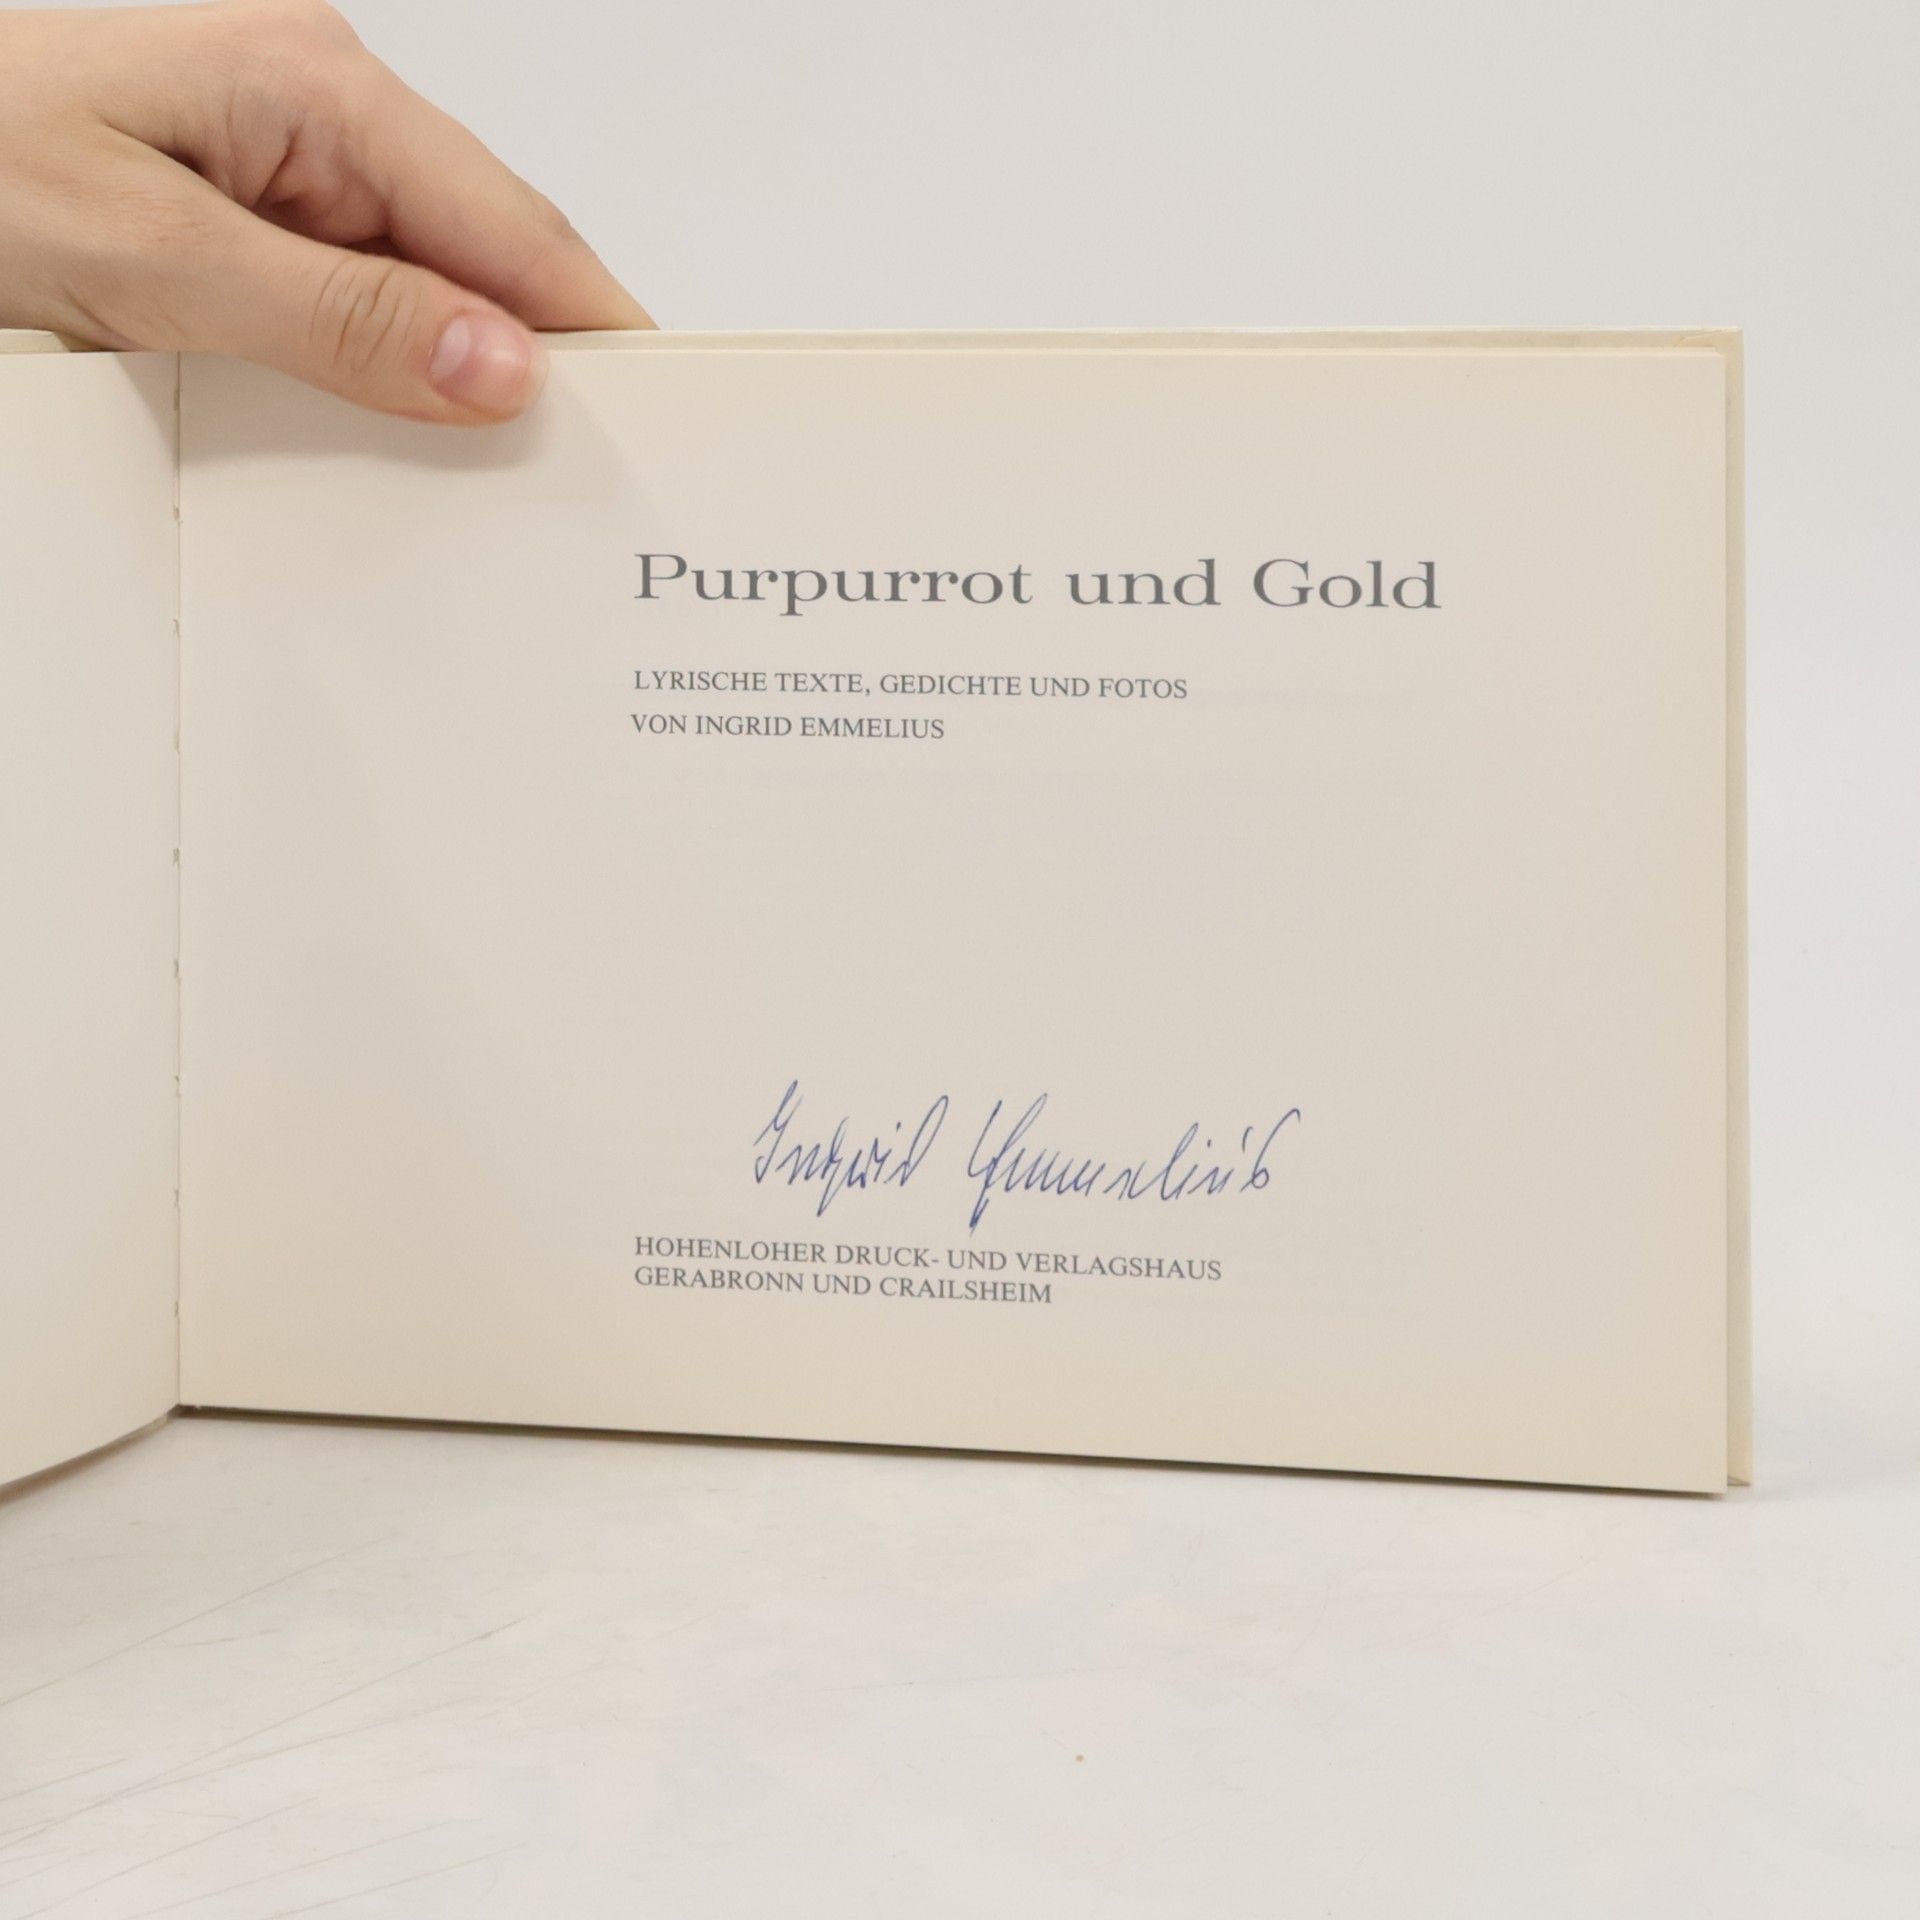 Purpurrot und Gold
LYRISCHE TEXTE, GEDICHTE UND FOTOS
VON INGRID EMMELIUS
Ingrid Emmelius
HOHENLOHER DRUCK- UND VERLAGSHAUS
GERABRONN UND CRAILSHEIM